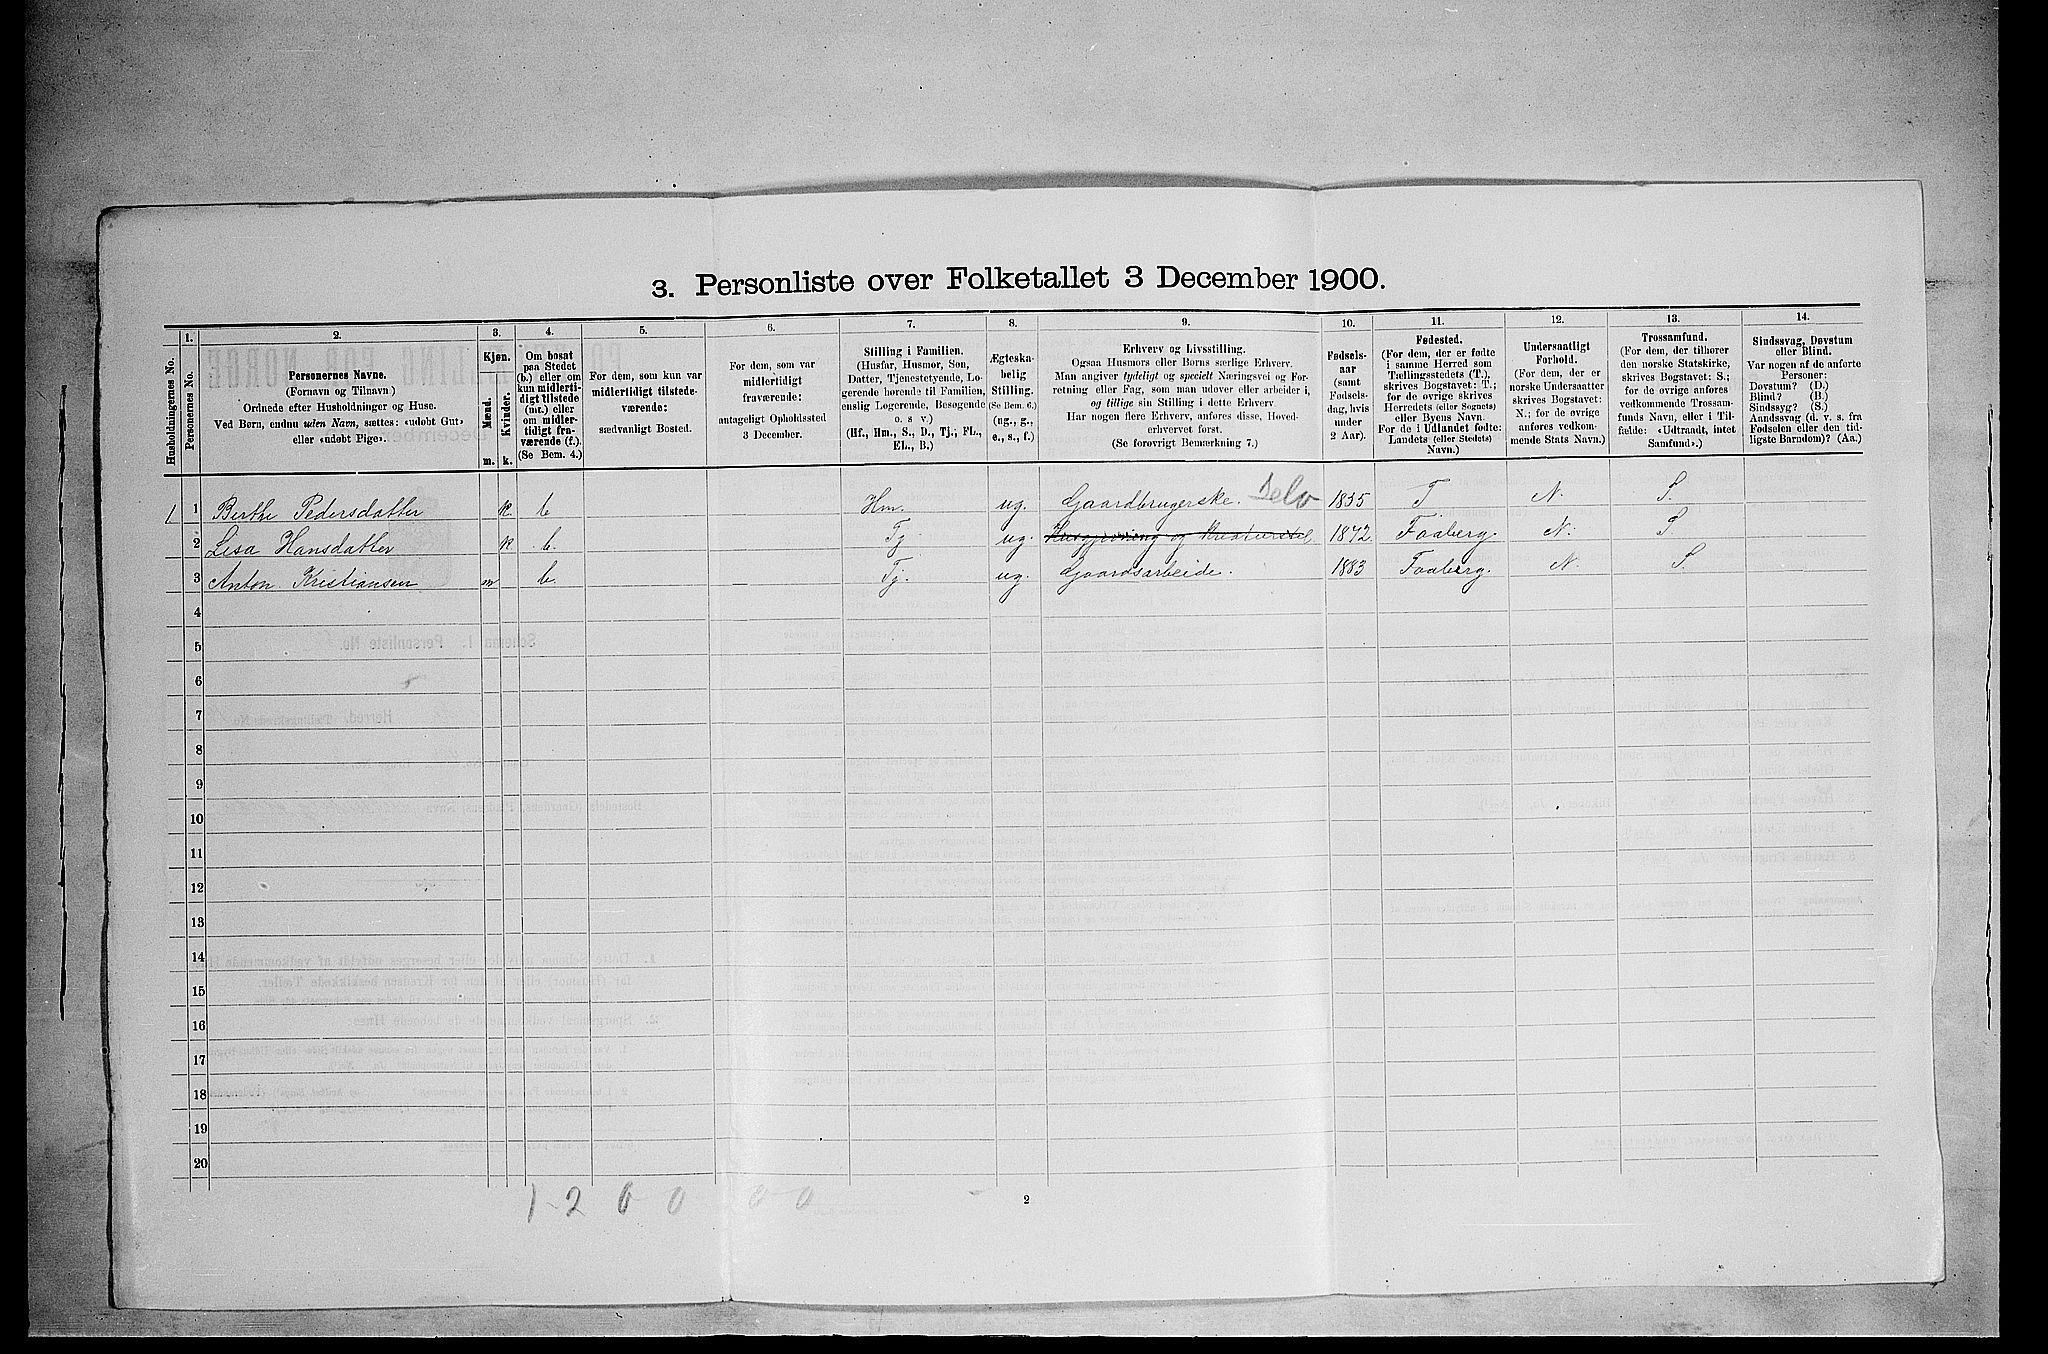 3. Personliste over Folketallet 3 December 1900.
Husholdningernes No.
1.
Personernes No.
2.
Personernes Navne.
(Fornavn og Tilnavn)
Ordnede efter Husholdninger og Huse.
Ved Børn, endnu uden Navn, sættes: «udøbt Gut»
eller «udøbt Pige».
3.
Kjøn.
Mænd.
Kvinder.
m. k.
4.
Om bosat
paa Stedet
(b.) eller om
kun midlerti-
digt tilstede
(mt.) eller
om midler-
tidigt fra-
værende (f.).
(Se Bem. 4.)
5.
For dem, som kun var
midlertidigt tilstede-
værende:
sædvanligt Bosted.
6.
For dem, som var
midlertidigt
fraværende:
antageligt Opholdssted
3 December.
7.
Stilling i Familien.
(Husfar, Husmor, Søn,
Datter, Tjenestetyende, Lo-
gerende hørende til Familien,
enslig Logerende, Besøgende
o. s v.)
(Hf., Hm., S., D., Tj., FL.,
EL., B.)
8.
Ægteska-
belig
Stilling.
(Se Bem. 6.)
(ug., g.,
e., s., f.)
9.
Erhverv og Livsstilling.
Ogsaa Husmors eller Børns særlige Erhverv.
Man angiver tydeligt og specielt Næringsvei og For-
retning eller Fag, som man udøver eller arbeider i,
og tillige sin Stilling i dette Erhverv.
Har nogen flere Erhverv, anføres disse, Hoved-
erhvervet først.
(Se forøvrigt Bemærkning 7.)
10.
Fødsels-
aar
(samt
Fødsels-
dag, hvis
under
2 Aar).
11.
Fødested.
(For dem, der er fødte
i samme Herred som
Tællingsstedets (T.),
skrives Bogstavet: T.;
for de øvrige skrives
Herredets (eller Sognets)
eller Byens Navn.
For de i Udlandet fødte:
Landets (eller Stedets)
Navn.)
12.
Undersaatligt
Forhold.
(For dem, der er
norske Undersaatter
skrives Bogstavet:
N.; for de øvrige
anføres vedkom-
mende Stats Navn.)
13.
Trossamfund.
(For dem, der tilhører
den norske Statskirke,
skrives Bogstavet: S.;
for de øvrige anføres
vedkommende Trossam-
funds Navn, eller i Til-
fælde: «Udtraadt, intet
Samfund».)
14.
Sindssvag, Døvstum
eller Blind.
Var nogen af de anførte
Personer:
Døvstum? (D.)
Blind? (B.)
Sindssyg? (S.)
Aandssvag (d. v. s. fra
Fødselen eller den tid-
ligste Barndom)? (Aa.)
1 1 Berthe Pedersdatter k. b Hm. ug. Gaardbrugerske. Selv 1835 T N. S.
2 Lisa Hansdatter k b. Tj ug. Husgjerning og Kreaturstel 1842 Faaberg. N. S
3 Anton Kristiansen m b. Tj. ug. Gaardsarbeide. 1883 Faaberg. N. S.
4
5
6
7
8
9
10
11
12
13
14
15
16
17
18
19
20
1-2 0 0 0 0
2